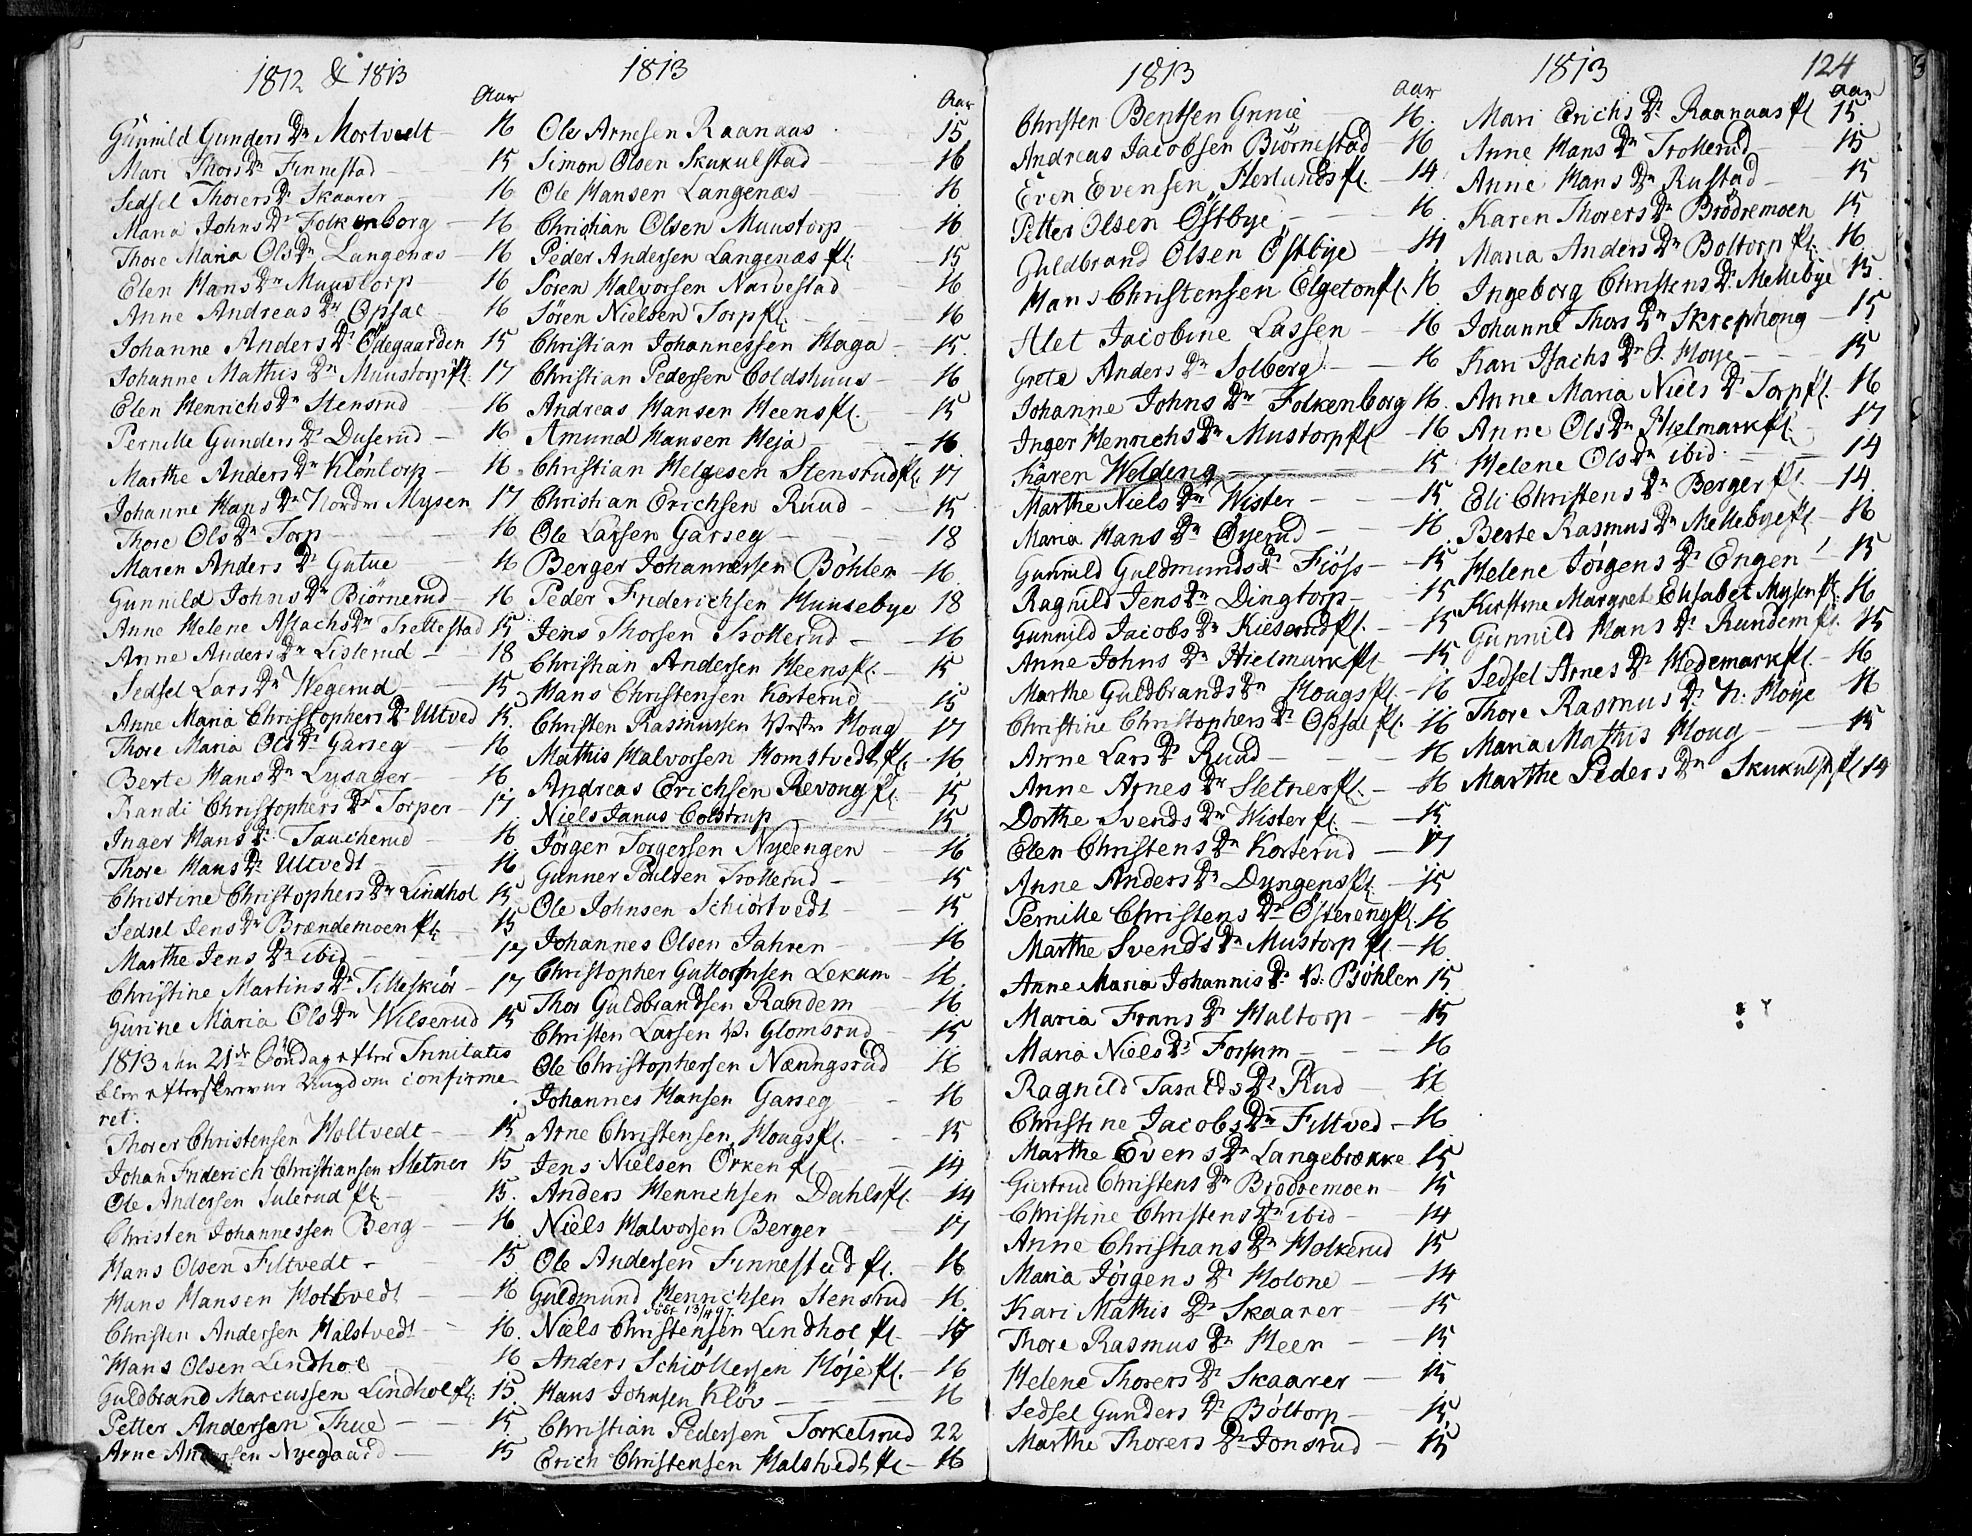 1812 & 1813
Aar
Gunnild Gunders Dr Mortvedt - 16
Mari Thors Dr Finnestad - 15
Sedsel Thorers Dr Skaarer - 16
Maria Johns Dr Folkenborg - 16
Thore Maria Ols Dr Langenæs - 16
Elen Hans Dr Muustorp - 16
Anne Andreas Dr Opsal - 16
Johanne Anders Dr Ödegaarden 15
Johanne Mathis Dr Muustorp fl. 17
Elen Henrichs Dr Stensrud - 16
Pernille Gunders Dr Duserud - 16
Marthe Anders Dr Klöntorp - 16
Johanne Hans Dr Nordre Mysen 17
Thore Ols Dr Torp - 16
Maren Anders Dr Gutue - 16
Gunnild Johns Dr Biörnerud - 16
Anne Helene Aslachs Dr Trettestad 15
Anne Anders Dr Listerud - 18
Sedsel Lars Dr Wegerud - 15
Anne Maria Christophers Dr Ultved 15
Thore Maria Ols Dr Garseg - 16
Berte Hans Dr Lysager - 16
Randi Christophers Dr Torper - 17
Inger Hans Dr Taucherud - 16
Thore Hans Dr Ultvedt - 16
Christine Christophers Dr Lindhol 15
Sedsel Jens Dr Brændemoen fl. 15
Marthe Jens Dr ibid - 17
Christine Martins Dr Tilleskiör - 17
Gurine Maria Ols Dr Wilserud 15
1813 den 21de Söndag efter Trinitatis
blev efterskrevne Ungdom confirme
ret:
Thorer Christensen Holtvedt - 15
Johan Friderich Christiansen Sletner 15
Ole Andersen Sulerud fl. - 15.
Christen Johannessen Berg - 16
Hans Olsen Filtvedt - 15
Hans Hansen Holtvedt - 16
Christen Andersen Halstvedt - 16.
Hans Olsen Lindhol - 16
Guldbrand Marcussen Lindhol fl. 15
Petter Andersen Thue - 15
Arne Andersen Nyegaard - 15
1813
Aar
Ole Arnesen Raanaas - 15
Simon Olsen Skukulstad - 16
Ole Hansen Langenæs - 16
Christian Olsen Muustorp - 16
Peder Andersen Langenæs fl. - 15
Sören Halvorsen Narvestad 16
Sören Nielsen Torp fl. - 16
Christian Johannessen Haga - 15.
Christian Pedersen Coldshuus - 16
Andreas Hansen Heens fl. 15
Amund Hansen Heja - 16
Christian Helgesen Stensrud fl. 17
Christian Erichsen Ruud - 15
Ole Larsen Garseg - 18
Berger Johannessen Böhler - 16
Peder Friderichsen Huusebye 18
Jens Thorsen Trollerud - 16
Christian Andersen Heens fl. - 15
Hans Christensen Korterud - 15
Christen Rasmussen Houg 17
Mathis Halvorsen Homstvedt fl. - 16
Andreas Erichsen Revoug fl. 15
Niels Janus Colstrup 15
Jörgen Jörgersen Nyeengen - 16
Gunner Poulsen Trollerud - 15
Ole Johnsen Schiörtvedt - 15
Johannes Olsen Jahren - 16
Christopher Guttormsen Lekum - 16.
Thor Guldbrandsen Randem - 16
Christen Larsen V. Glomsrud - 15
Ole Christophersen Nænngsrud 16
Johannes Hansen Garseg - 16
Arne Christensen Hougs fl. - 15
Jens Nielsen Örken fl. - 14
Anders Henrichsen Dahls fl. 14
Niels Halvorsen Berger 17
Ole Andersen Finnestad fl. - 16
Guldmund Henrichsen Stensrud - 16.
döbt 13/4 97.
Niels Christensen Lindhol fl. - 17
Anders Schiöllersen Höje fl. - 16
Hans Johnsen Klöv - 16
Christian Pedersen Torkelsrud 22
Erich Christensen Halstvedt fl. - 16
1813
Aar
Christen Bentsen Gnnie 16.
Andreas Jacobsen Biörnestad - 16
Even Evensen Herlunds fl. - 14
Petter Olsen Östbye - 16.
Guldbrand Olsen Östbye - 14
Hans Christensen Elgeton fl. 16
Alet Jacobine Lassen - 16
Grete Anders Dr Solberg - 16
Johanne Johns Dr Folkenborg 16.
Inger Henrichs Dr Mustorp fl. - 16
Karen Welding - 15
Marthe Niels Dr Wister - 15
Maria Hans Dr Öyerud - 16
Gunnild Guldmunds Dr Fiöss - 15
Ragnild Jens Dr Dingtorp - 15
Gunnild Jacobs Dr Kieserud fl. - 15
Anne Johns Dr Hielmark fl. - 15
Marthe Guldbrands Dr Hougs fl. - 16
Christine Christophers Dr Opsal fl. 16
Anne Lars Dr Ruud - 16
Anne Arnes Dr Sletner fl. - 16
Dorthe Svends Dr Wister fl. - 15
Elen Christens Dr Korterud - 17
Anne Anders Dr Dyngens fl. - 15
Pernille Christens Dr Östereng fl. 16
Marthe Svends Dr Mustorp fl. - 16
Anne Maria Johannis Dr V. Böhler 15
Maria Frans Dr Haltorp - 15
Maria Niels Dr Forsum - 16
Ragnild Taralds Dr Rud - 16
Christine Jacobs Dr Filtved - 16
Marthe Evens Dr Langebrække 15
Giertrud Christens Dr Brödremoen - 15
Christine Christens Dr ibid - 14
Anne Christians Dr Holkerud 15
Maria Jörgens Dr Holone - 14
Kari Mathis Dr Skaarer - 15
Thore Rasmus Dr Heen - 15
Helene Thorers Dr Skaarer - 15
Sedsel Gunders Dr Böltorp - 15
Marthe Thorers Dr Jonsrud - 15
1813
124
Aar
Mari Erichs Dr Raanaas fl. 15
Anne Hans Dr Trollerud - 15
Anne Hans Dr Rustad - 15
Karen Thorers Dr Brödremoen 15
Maria Anders Dr Boltorp fl. 16
Ingeborg Christens Dr Mellebye 15
Johanne Thors Dr Skrephong - 15
Kari Isachs Dr S. Höye - 15
Anne Maria Niels Dr Torp fl. 16
Anne Ols Dr Hielmark fl. 17
Helene Ols Dr ibid. - 14
Eli Christens Dr Berger fl. - 14
Berte Rasmus Dr Mellebye fl. - 16
Helene Jörgens Dr Engen - 15
Kirstine Margret Elisabet Mysen fl. 16
Gunnild Hans Dr Randem fl. 15
Sedsel Arnes Dr Hedemark fl. - 16
Thore Rasmus Dr N: Höye 16
Maria Mathis Houg - 15
Marthe Peders Dr Skukulst fl. 14